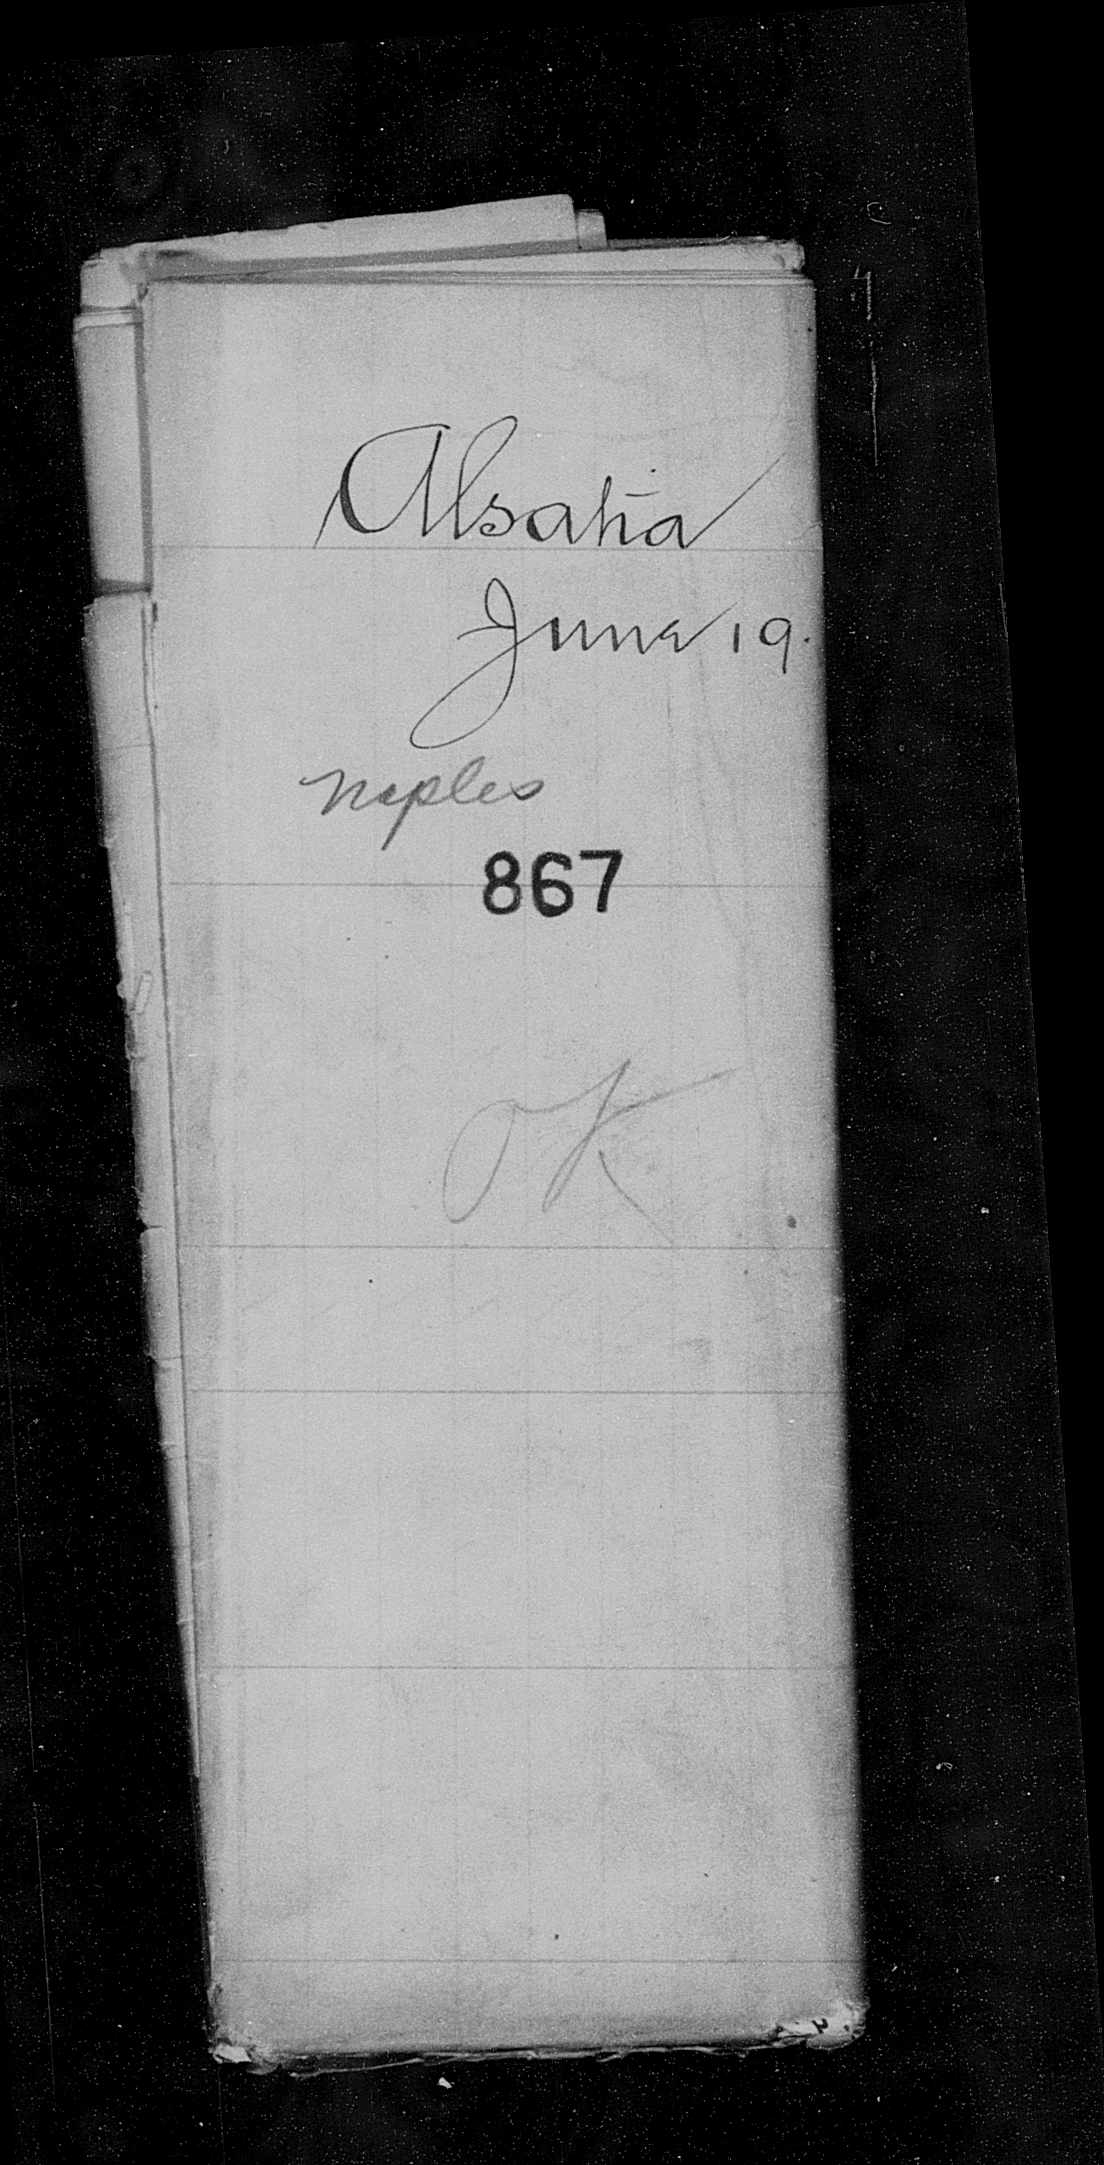 Alsatia
June 19.
Naples
867
OK